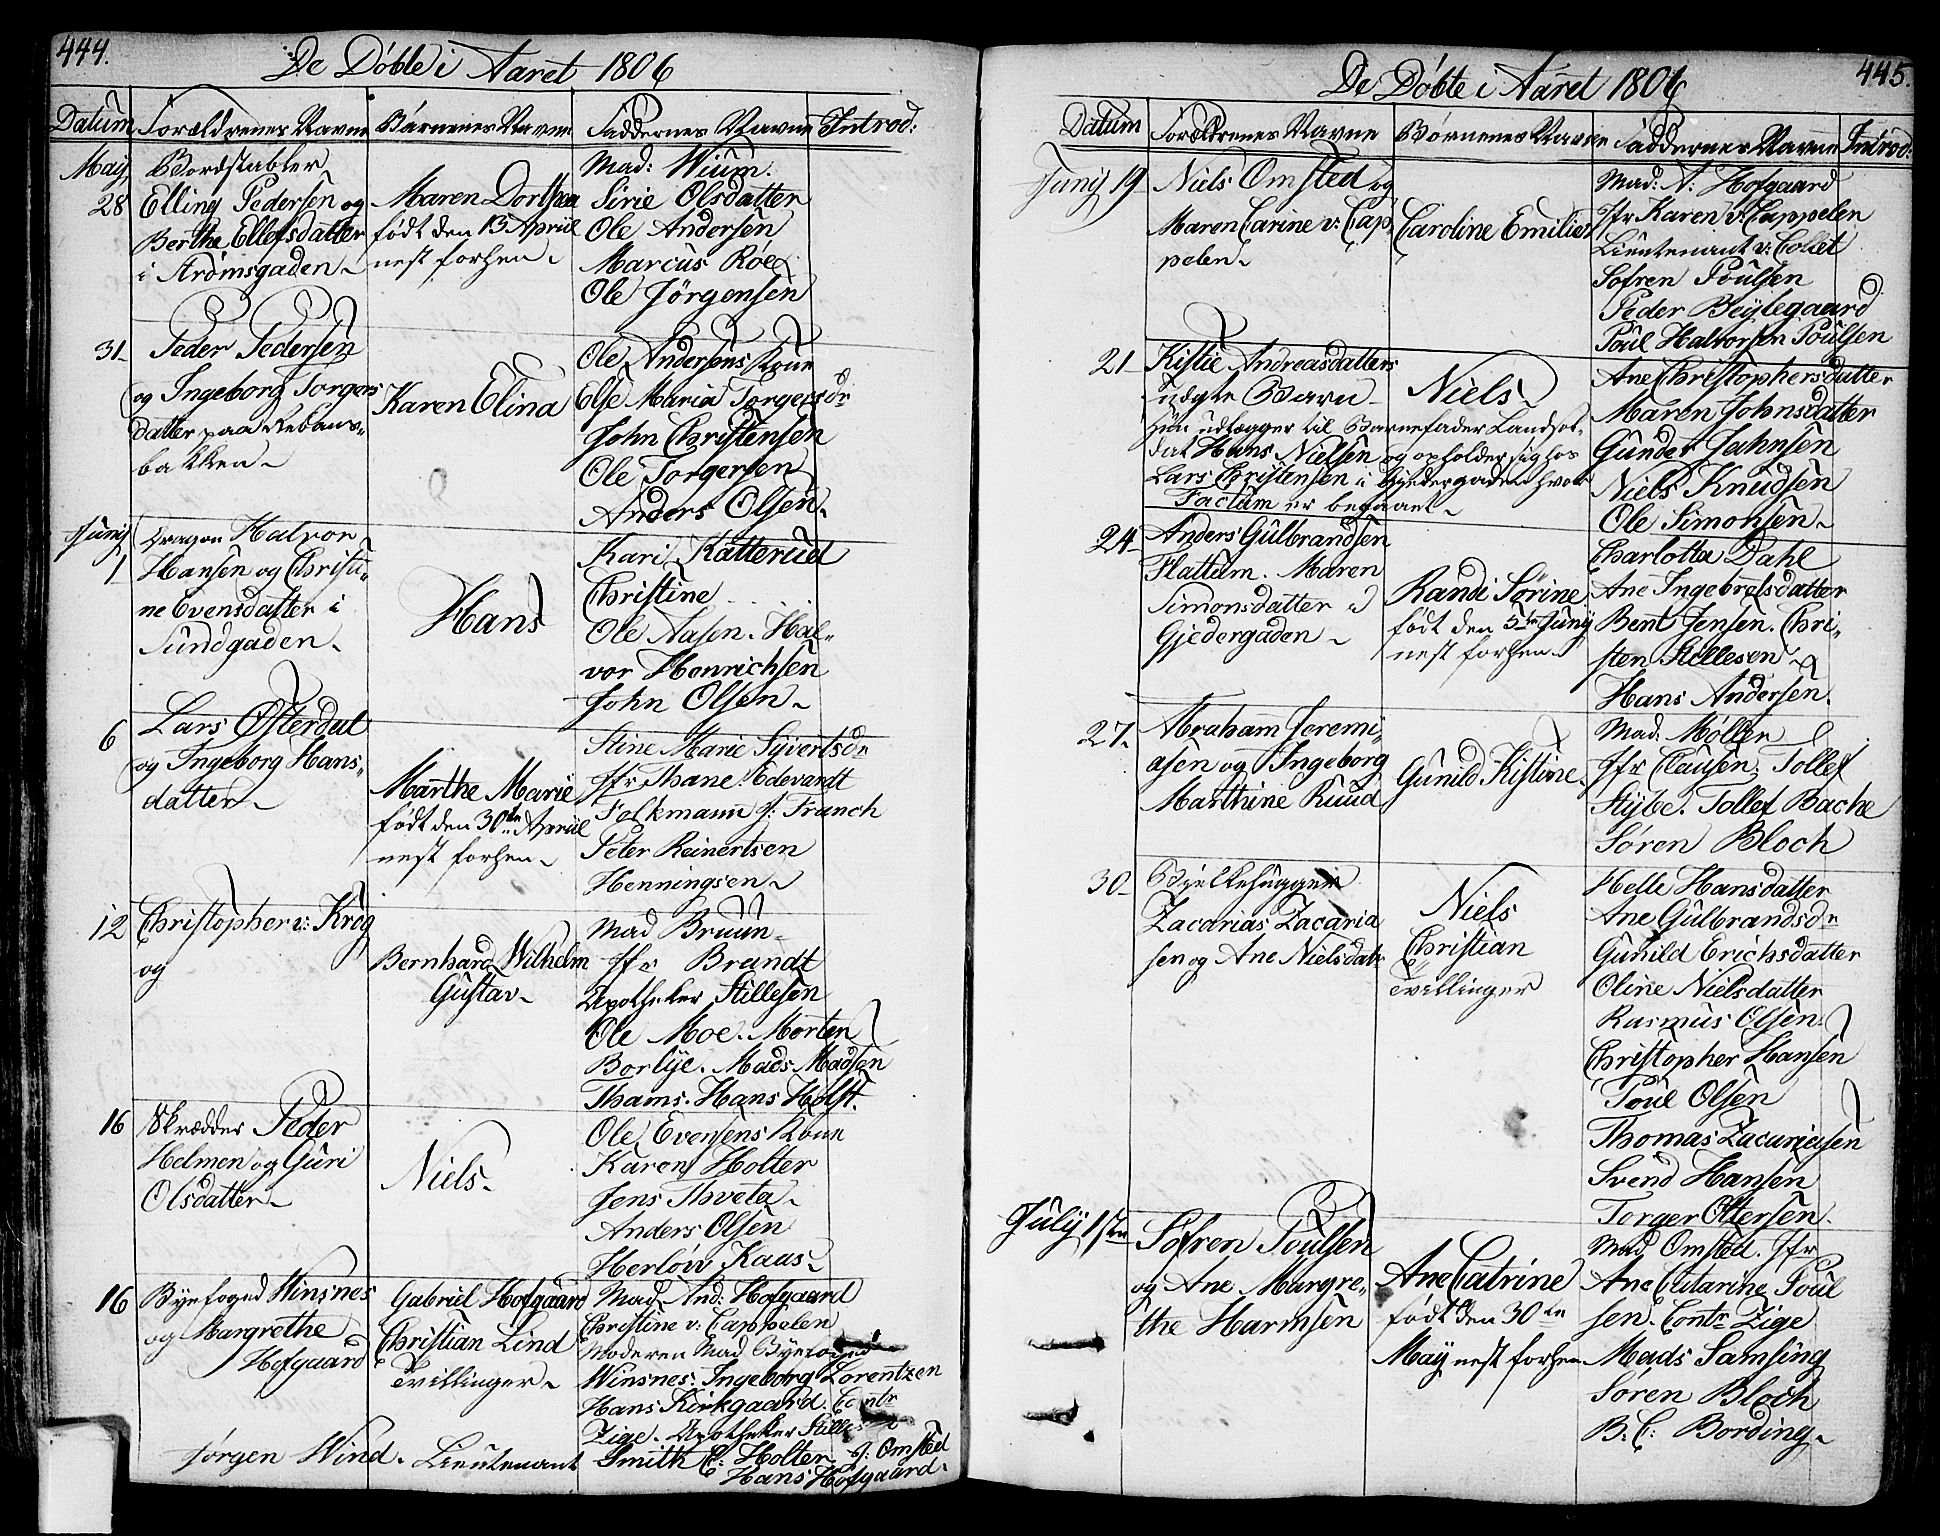 444.
De Döbte i Aaret 1806
Datum
Forældrenes Navne
Börnenes Navne
Faddernes Navne
Introd:
May
28
Bordstabler
Elling Pedersen og
Berthe Ellefsdatter
i Strömsgaden
Maren Dorthea
födt den 13 April
nest forhen
Mad: Wium.
Sirie Olsdatter
Ole Andersen
Marcus Röe
Ole Jörgensen
31
Peder Pedersen
og Ingeborg Torgers
datter paa Rebans-
bakken
Karen Elina
Ole Andersens Kone
Else Maria Torgersdr
John Christensen
Ole Torgersen
Anders Olsen
Junij
1
Dragon Halvor
Hansen og Christi-
ne Evensdatter i
Sundgaden
Hans
Kari Katterud
Christine
Ole Aasen. Hal-
vor Henrichsen
John Olsen
6
Lars Österdal
og Ingeborg Hans-
datter
Marthe Marie
födt den 30te April
nest forhen
Stine Marie Syvertsdr
Jfr Thane. Edevardt
Folkmann J: Franch
Peter Reinertsen
Henningsen
12
Christopher v: Krog
og
Bernhard Wilhelm
Gustav
Mad Bruun
Jfr Brandt
Apotheker Stillesen
Ole Moe. Morten
Borlye. Mads Madsen
Thams. Hans Holst.
16
Skrædder Peder
Helmen og Guri
Olsdatter
Niels
Ole Evensens Kone
Karen Holter
Jens Thveta
Anders Olsen
Herlöv Kaas
16
Byefoged Winsnes
og Margrethe
Hofgaard
Gabriel Hofgaard
Christian Lind
Tvillinger
Mad And: Hofgaard
Christine v: Cappelen
Moderen Mad Byefoged
Winsnes. Ingeborg Lorentzen
Hans Kirkgaard. Contr
Zige. Apotheker Stilles
Jörgen Wind. Lieutenant Smith C: Holter J: Omsted
Hans Hofgaard.
445.
De Döbte i Aaret 1806
Datum
Forældrenes Navne
Börnenes Navne
Faddernes Navne
Introd:
Junij 19
Niels Omsted og
Maren Carine v: Cap
pelen
Caroline Emilie
Mad: A: Hofgaard
Jfr Karen v: Cappelen
Lieutenant v: Collet
Sofren Poulsen
Peder Beylegaard
Poul Halvorsen Poulsen
21
Kistie Andreasdatters
uægte Barn
Hun udlægger til Barnefader Landsol-
dat Hans Nielsen og opholder sig hos
Lars Christensen i Giedergaden hvor
Factum er begaaet
Niels
Ane Christophersdatter
Maren Johnsdatter
Gunder Jahnsen
Niels Knudsen
Ole Simonsen
24
Anders Gulbrandsen
Flattum. Maren
Simonsdatter i
Gjedergaden
Randi Sörine
födt den 5te Junij
nest forhen
Charlotta Dahl
Ane Ingebretsdatter
Bent Jensen. Chri-
sten Stillesen
Hans Andersen.
27.
Abraham Jeremi-
asen og Ingeborg
Marthine Ruud
Gunild Kistine.
Mad. Möller
Jfr Clausen, Tollef
Stybe. Tollef Bache
Sören Bloch
30
Bielkehugger
Zacarias Zacaria
sen og Ane Nielsdatr
Niels
Christian
Tvillinger
Helle Hansdatter
Ane Gulbrandsdr
Gunild Erichsdatter
Oline Nielsdatter
Rasmus Olsen
Christopher Hansen
Poul Olsen
Thomas Zacariasen
Svend Hansen
Torger Ottersen.
July 1sten
Sofren Poulsen
og Ane Margre-
the Harmsen
Ane Catrine
födt den 30te
May nest forhen
Mad Omsted. Jfr
Ane Catarine Poul
sen. Contr Zige
Mads Samsing
Sören Bloch
B: C: Bording